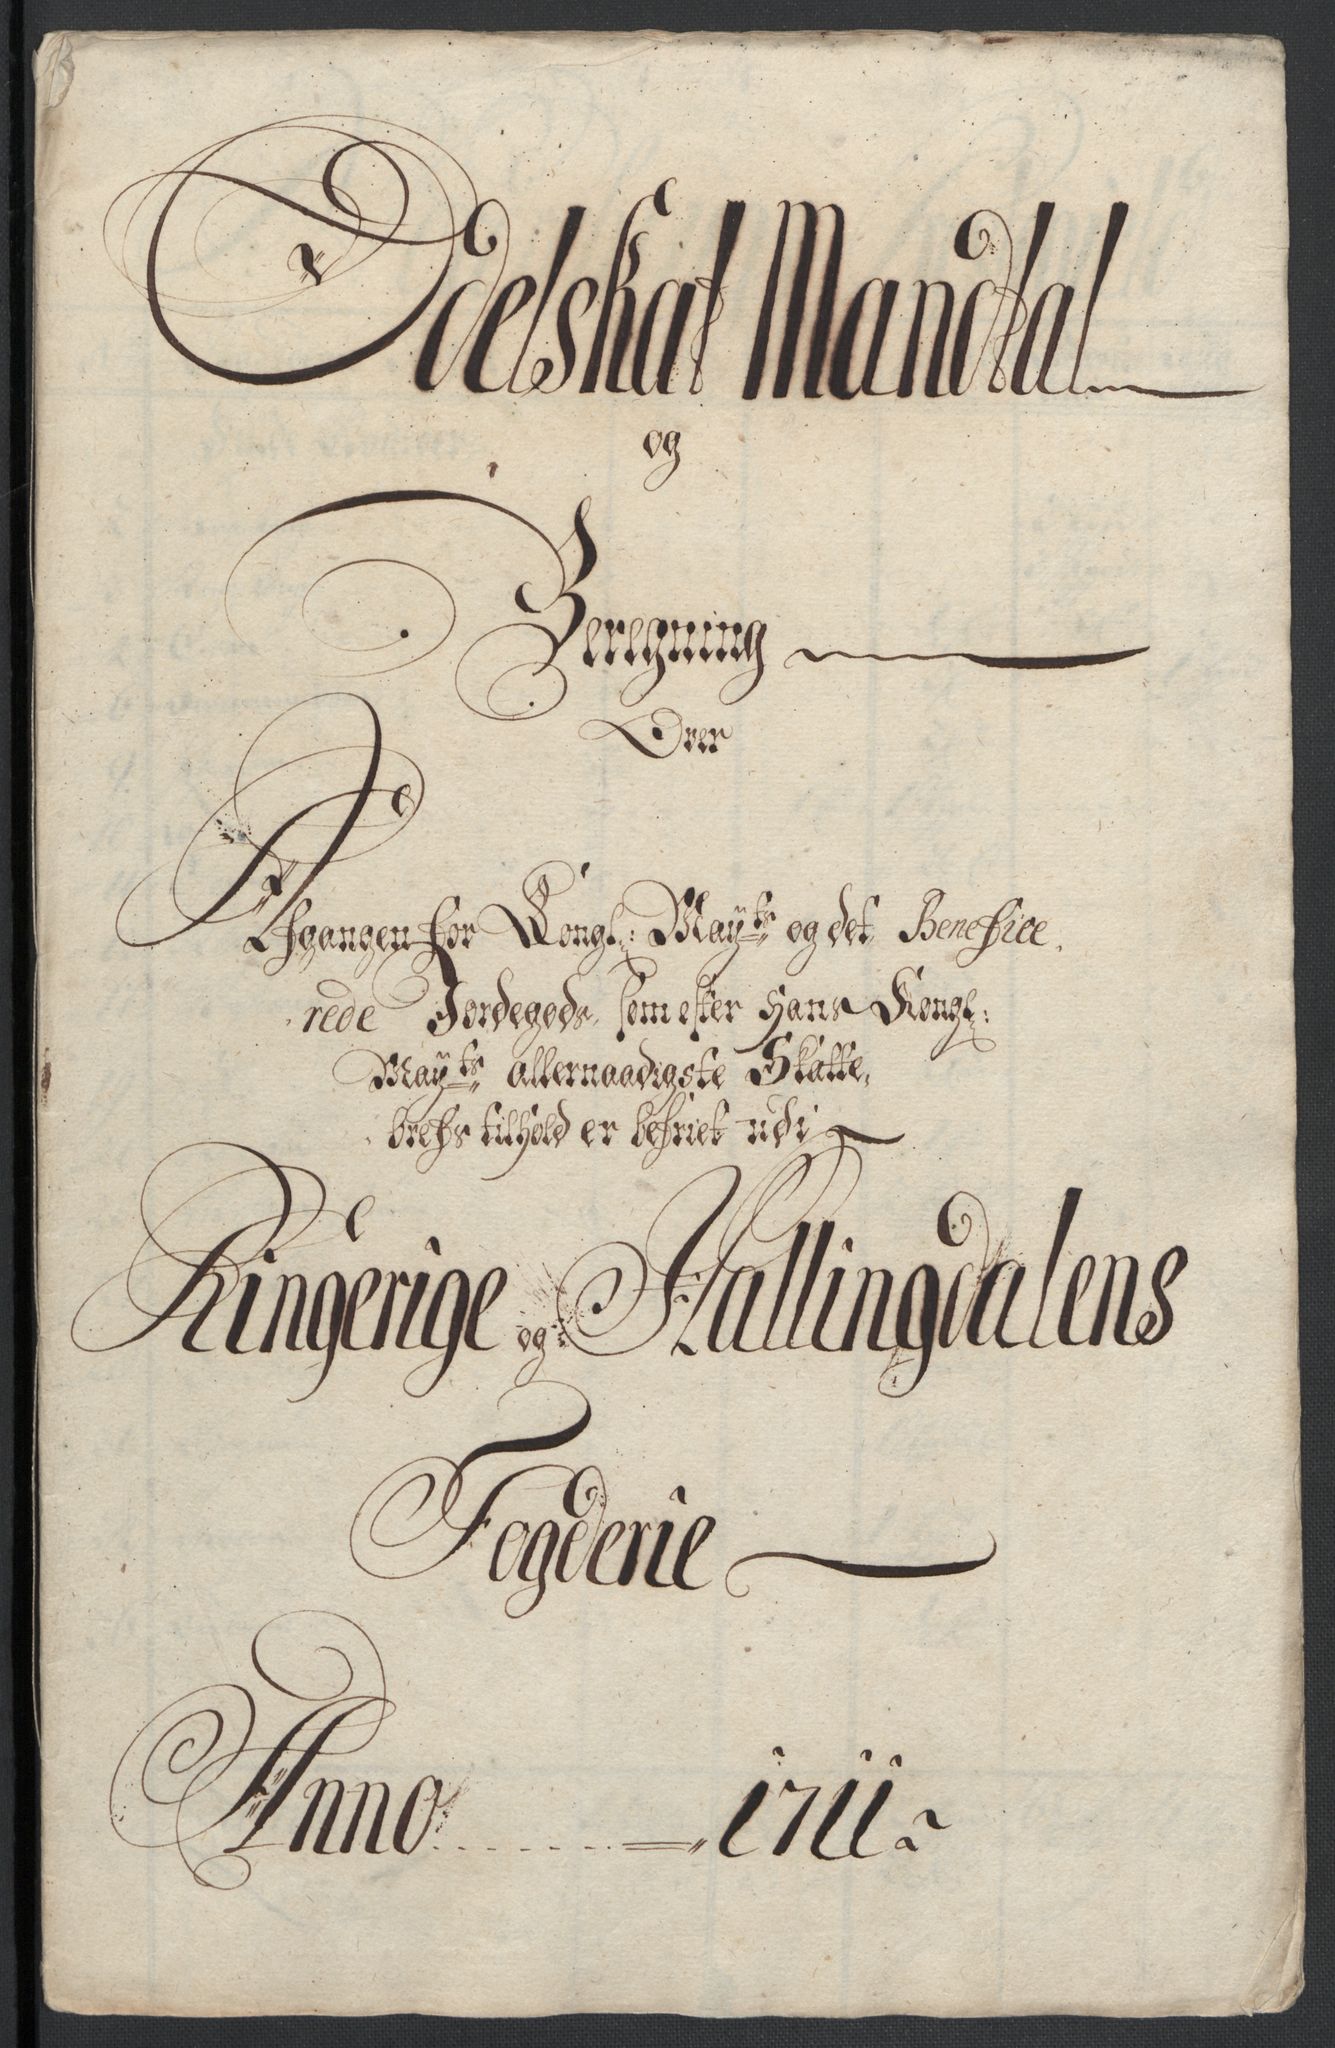 Odelskat Mandtal
og
Beregning
Over
Afgangen for Kongl: Mayts og det Benefice,
rede Jordegods, som efter Hans Kongl:
Mayts allernaadigste Skatte,
brefs tilhold er befriet udi
Ringerige og Hallingdalens
Fogderie
Anno 1711